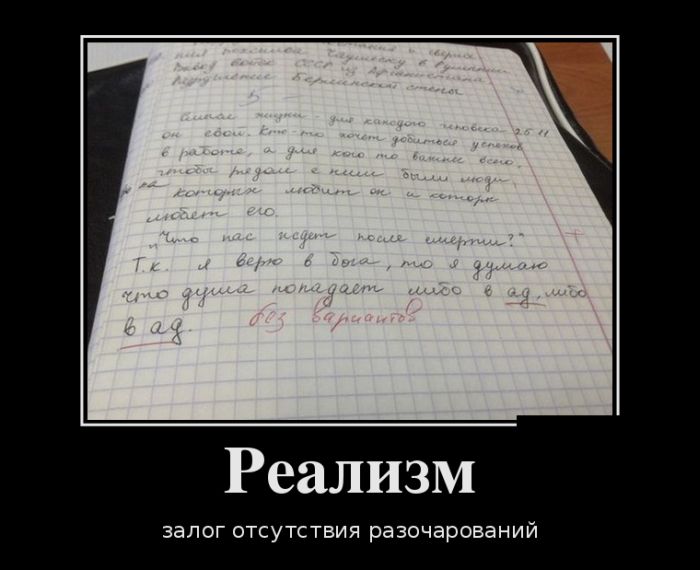 пил Чаушеску в Румынии
Вывод войск СССР из Афганистана
Разрушение Берлинской стены
5
Смысл жизни - для каждого человека 25.11
он свой. Кто-то хочет добиться успехов
в работе, а для кого то важнее всего,
чтобы рядом с ним были люди,
на которых любит он и которы
любят его.
"Что нас ждет после смерти?"
Т.к. я верю в бога, то я думаю
что душа попадает либо в ад, либо
в ад. без вариантов
Реализм
залог отсутствия разочарований